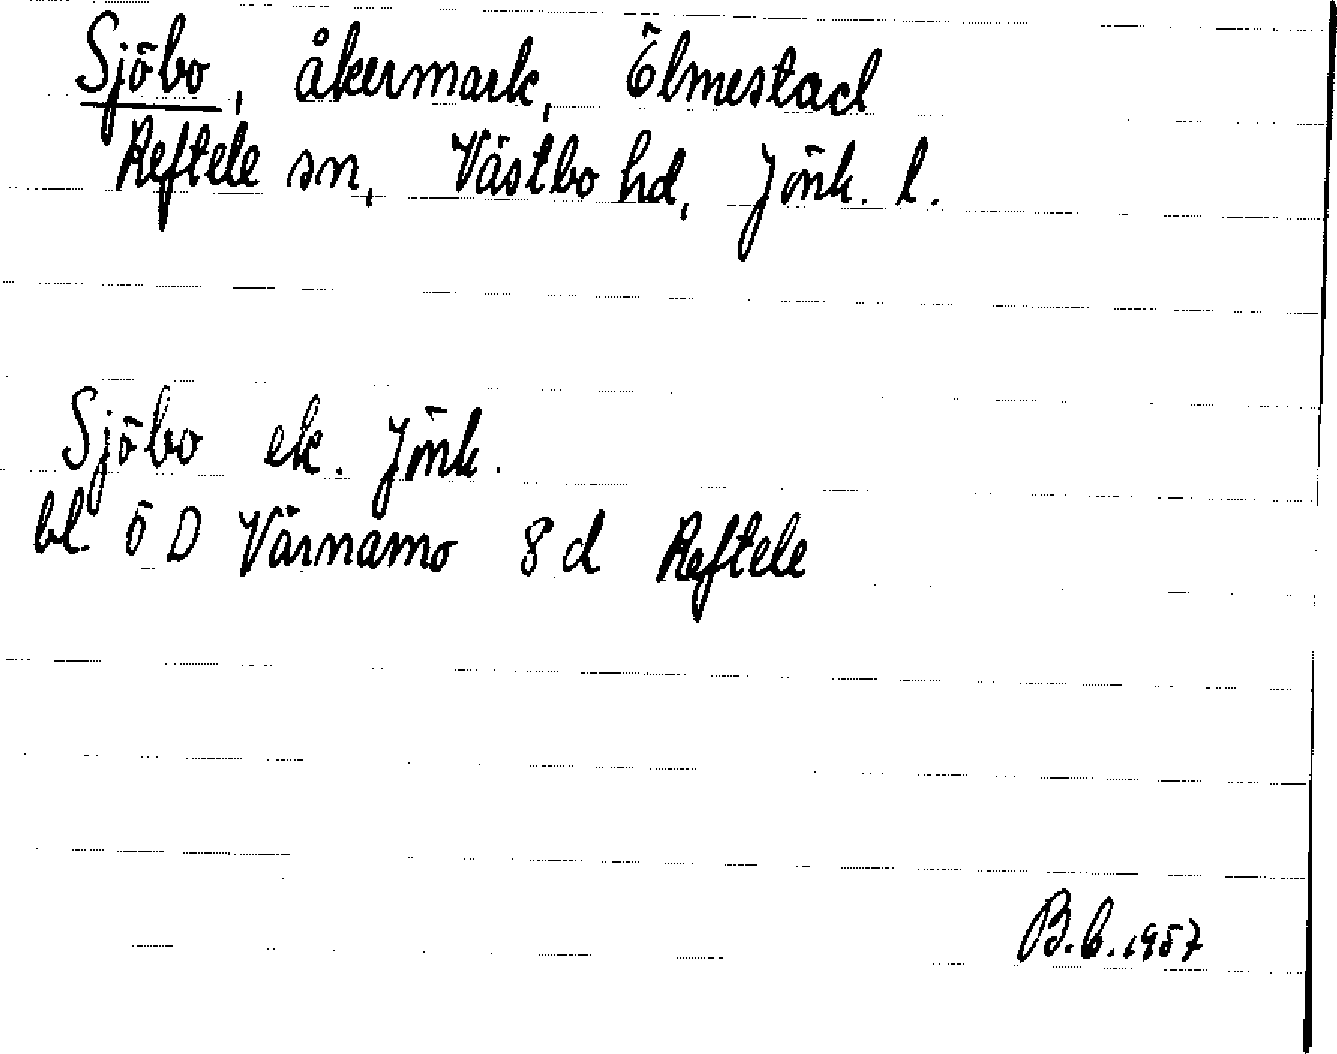 Sjöbo, åkermark, Ölmestad
Reftele sn, Västbo hd, Jönk. l.
Sjöbo ek. Jönk.
bl ÖD Värnamo 8 d Reftele
B.b.1957